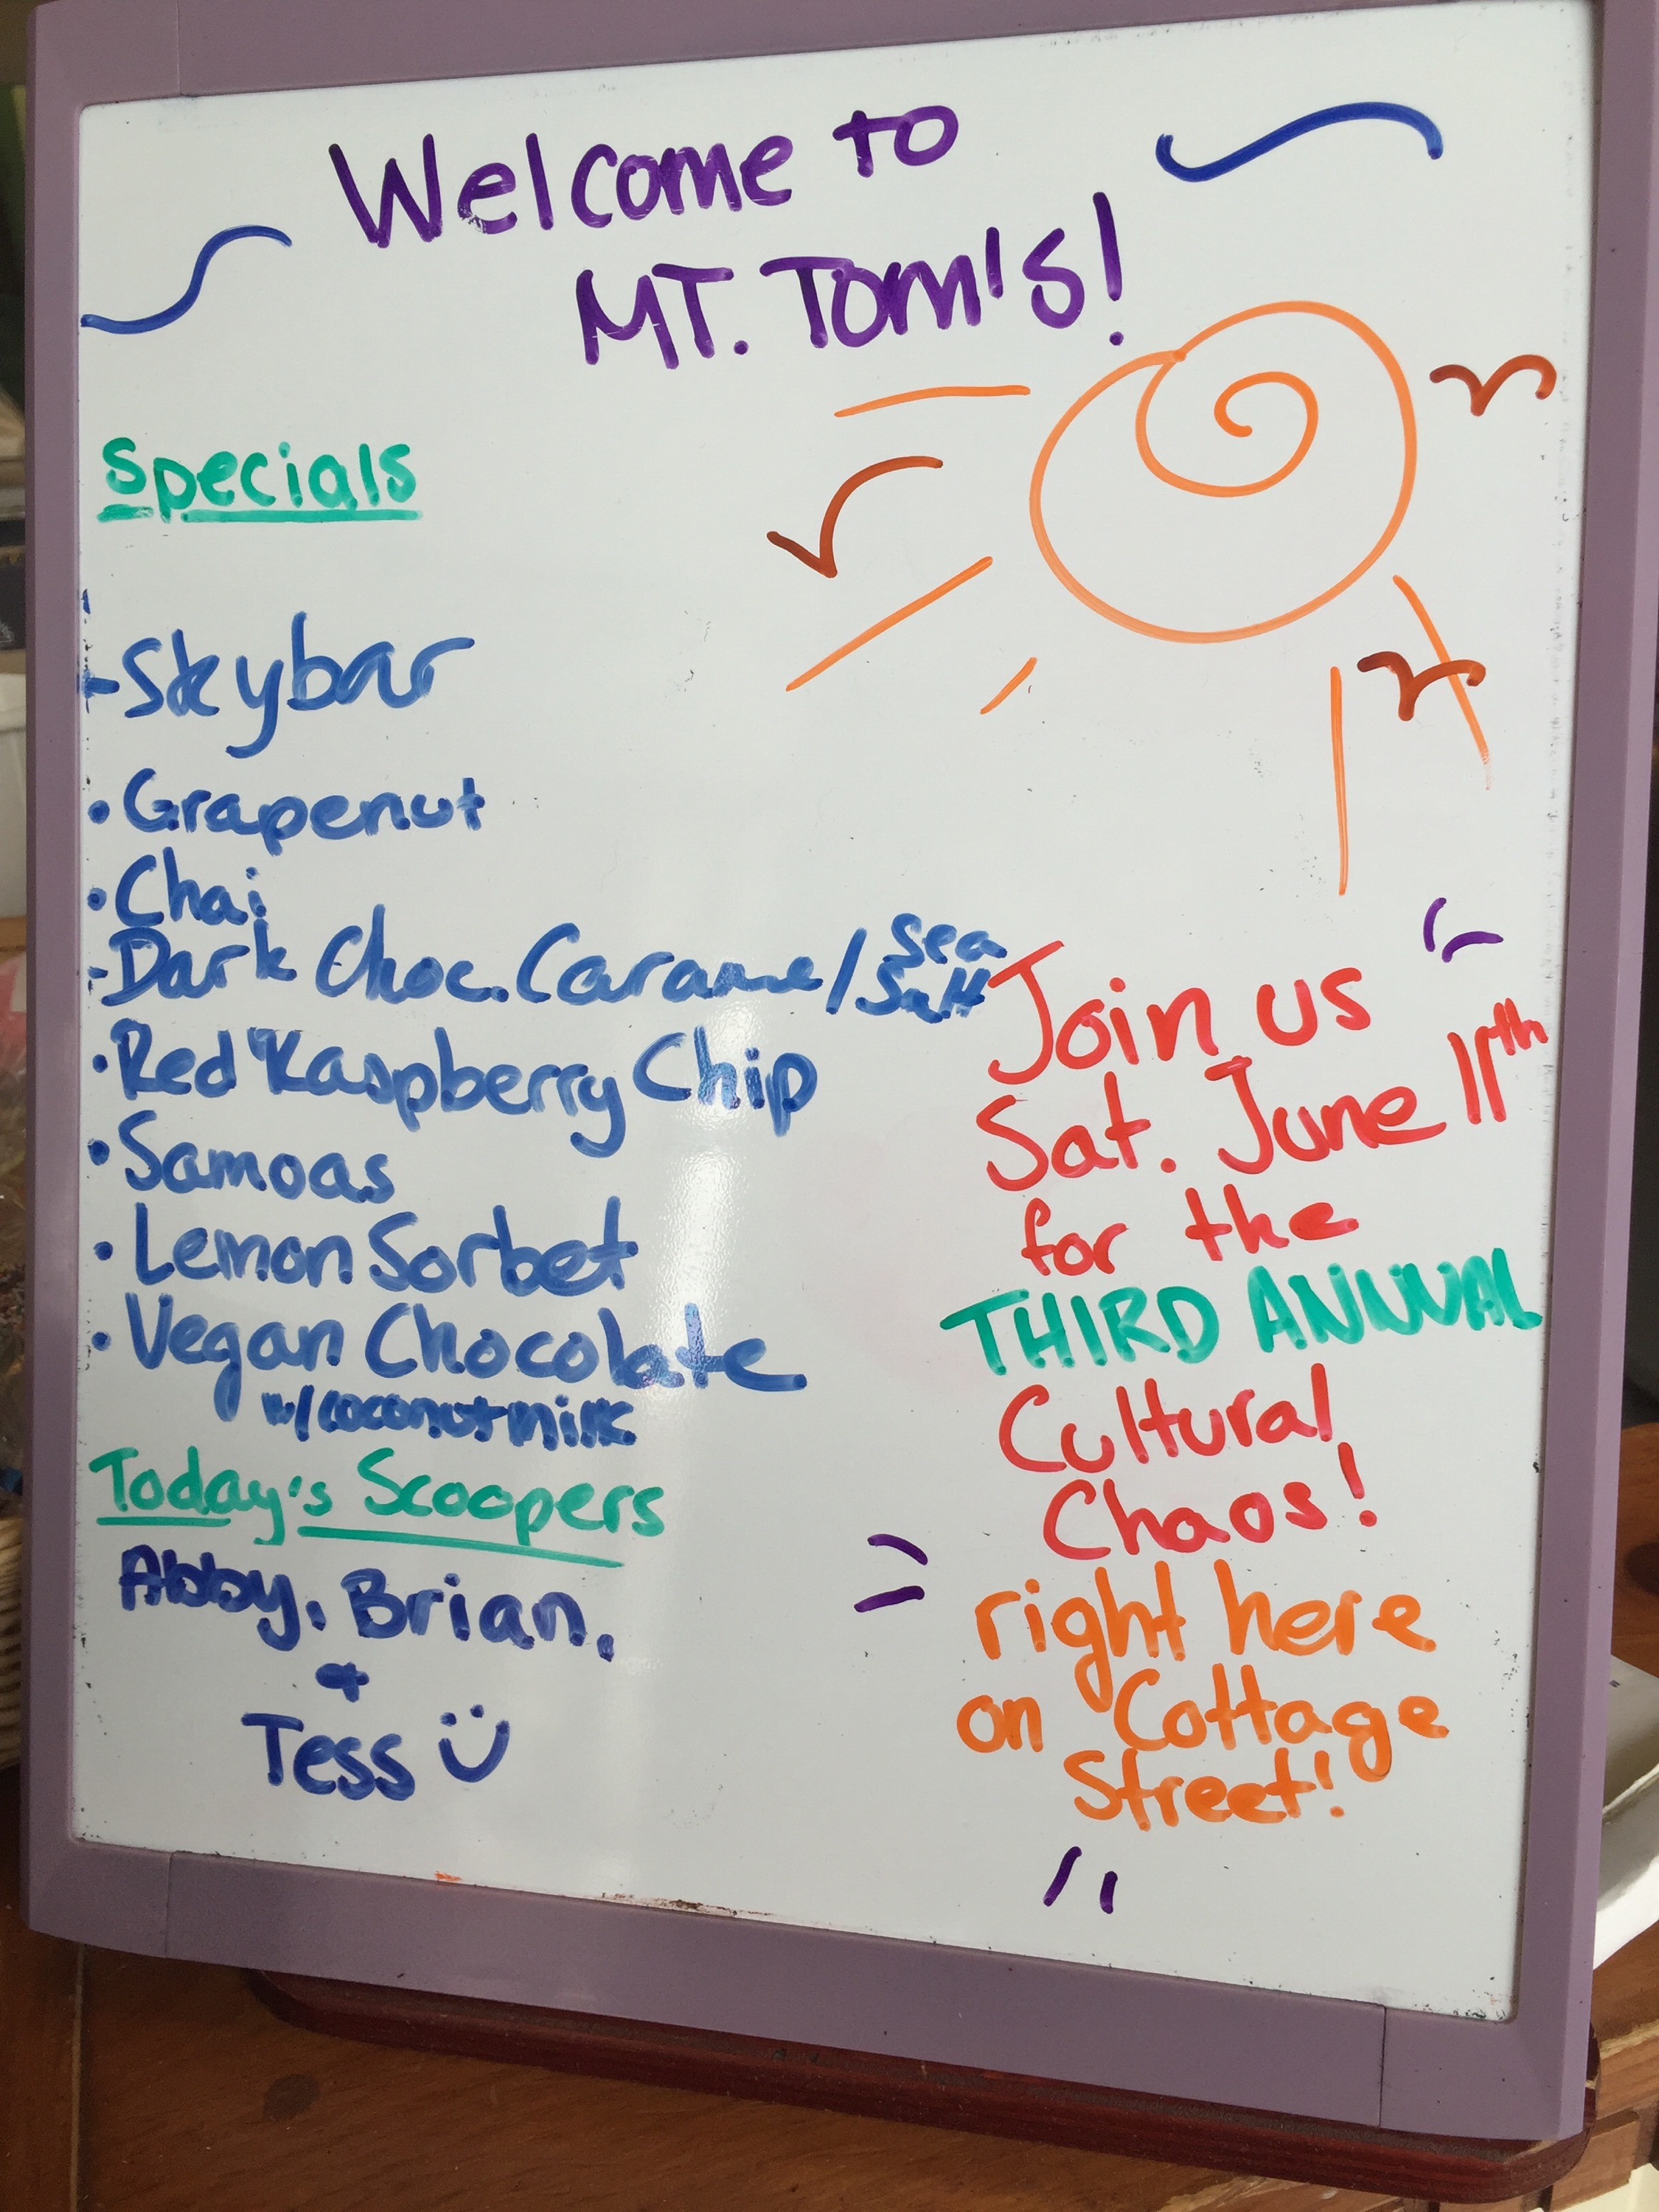 Welcome to
MT. Tom's!
Specials
Skybar
• Grapenut
• Chai
- Dark Choc. Caramel/Sea Salt
• Red Raspberry Chip
• Samoas
• Lemon Sorbet
• Vegan Chocolate
w/coconut milk
Today's Scoopers
Abby, Brian,
&
Tess
Join us
Sat. June 11th
for the
THIRD ANNUAL
Cultural
Chaos!
right here
on Cottage
Street!